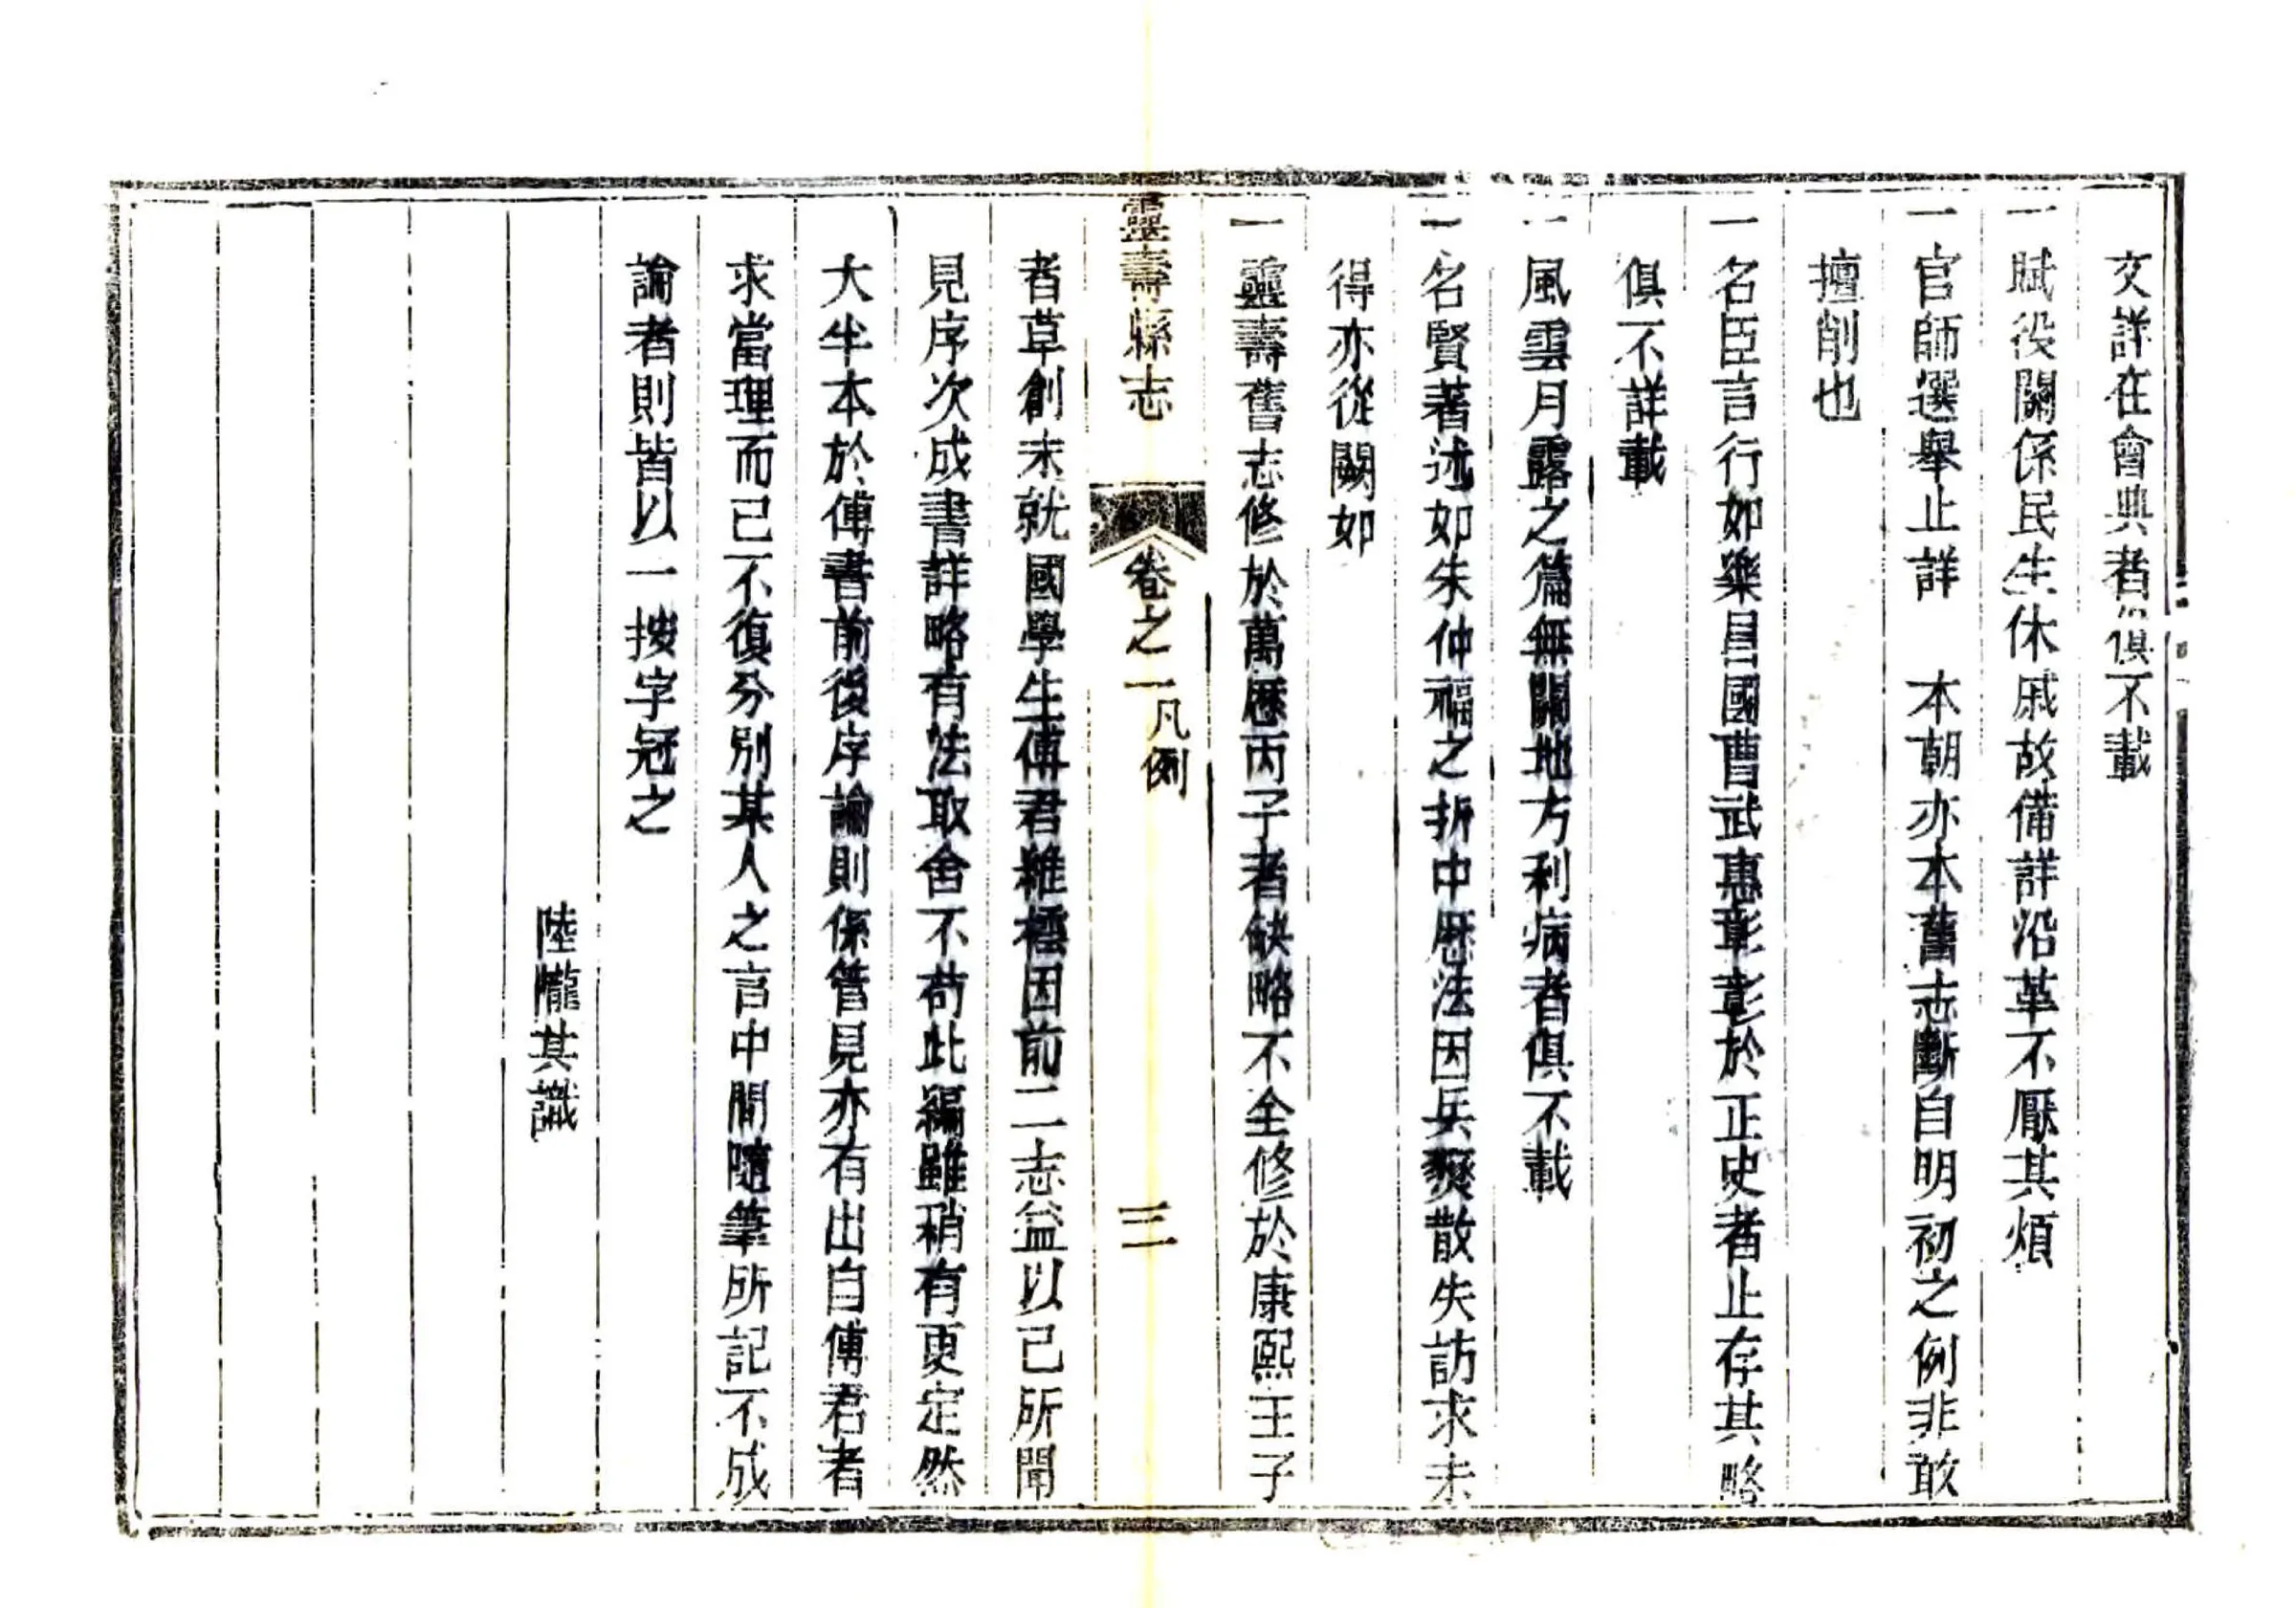 文詳在會典者俱不載
一賦役關係民生休戚故備詳沿革不厭其煩
一官師選舉止詳　本朝亦本舊志斷自明初之例非敢
擅削也
一名臣言行如樂昌國曹武惠章章彰於正史者止存其略
俱不詳載
一風雲月露之篇無關地方利病者俱不載
一名賢著述如朱仲福之折中厯法因兵燹散失訪求未
得亦從闕如
一靈壽舊志修於萬厯丙子者缺略不全修於康熙壬子
靈壽縣志　卷之一凡例　三
者草創未就國學生傅君維橒因前二志益以己所聞
見序次成書詳略有法取舍不苟此編雖稍有更定然
大半本於傅書前後序論則係管見亦有出自傅君者
求當理而已不復分別某人之言中間隨筆所記不成
論者則皆以一按字冠之
陸隴其識